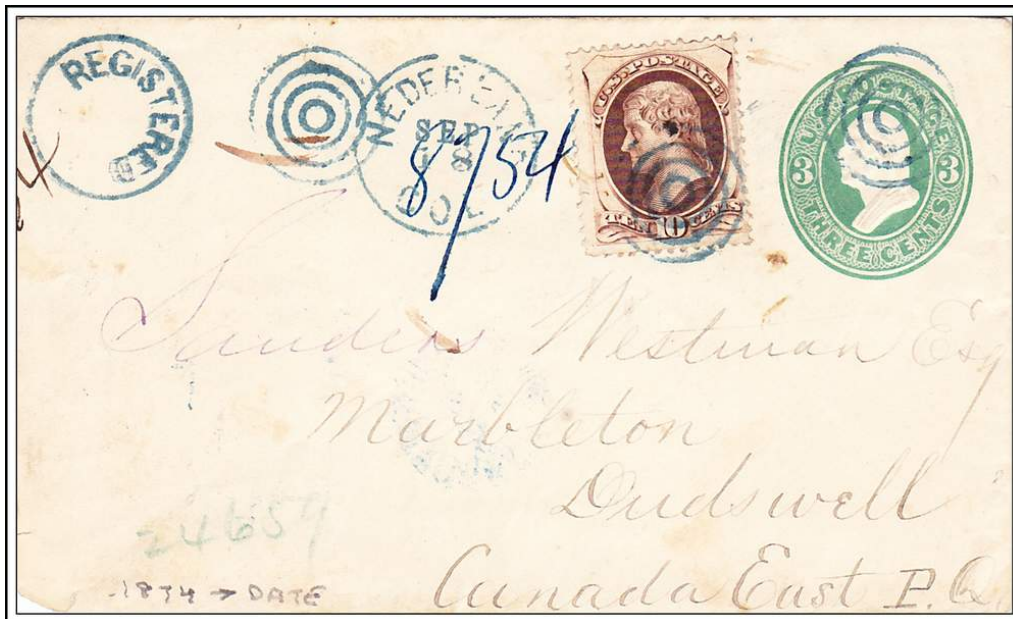 REGISTERED
NEDERLAND
SEP
18
COL
8754
U.S. POSTAGE
TEN 10 CENTS
U.S. POSTAGE
3 3
THREE CENTS
Sanders Westman Esq
Marbleton
Dudswell
Canada East P.Q.
24659
1874 → DATE